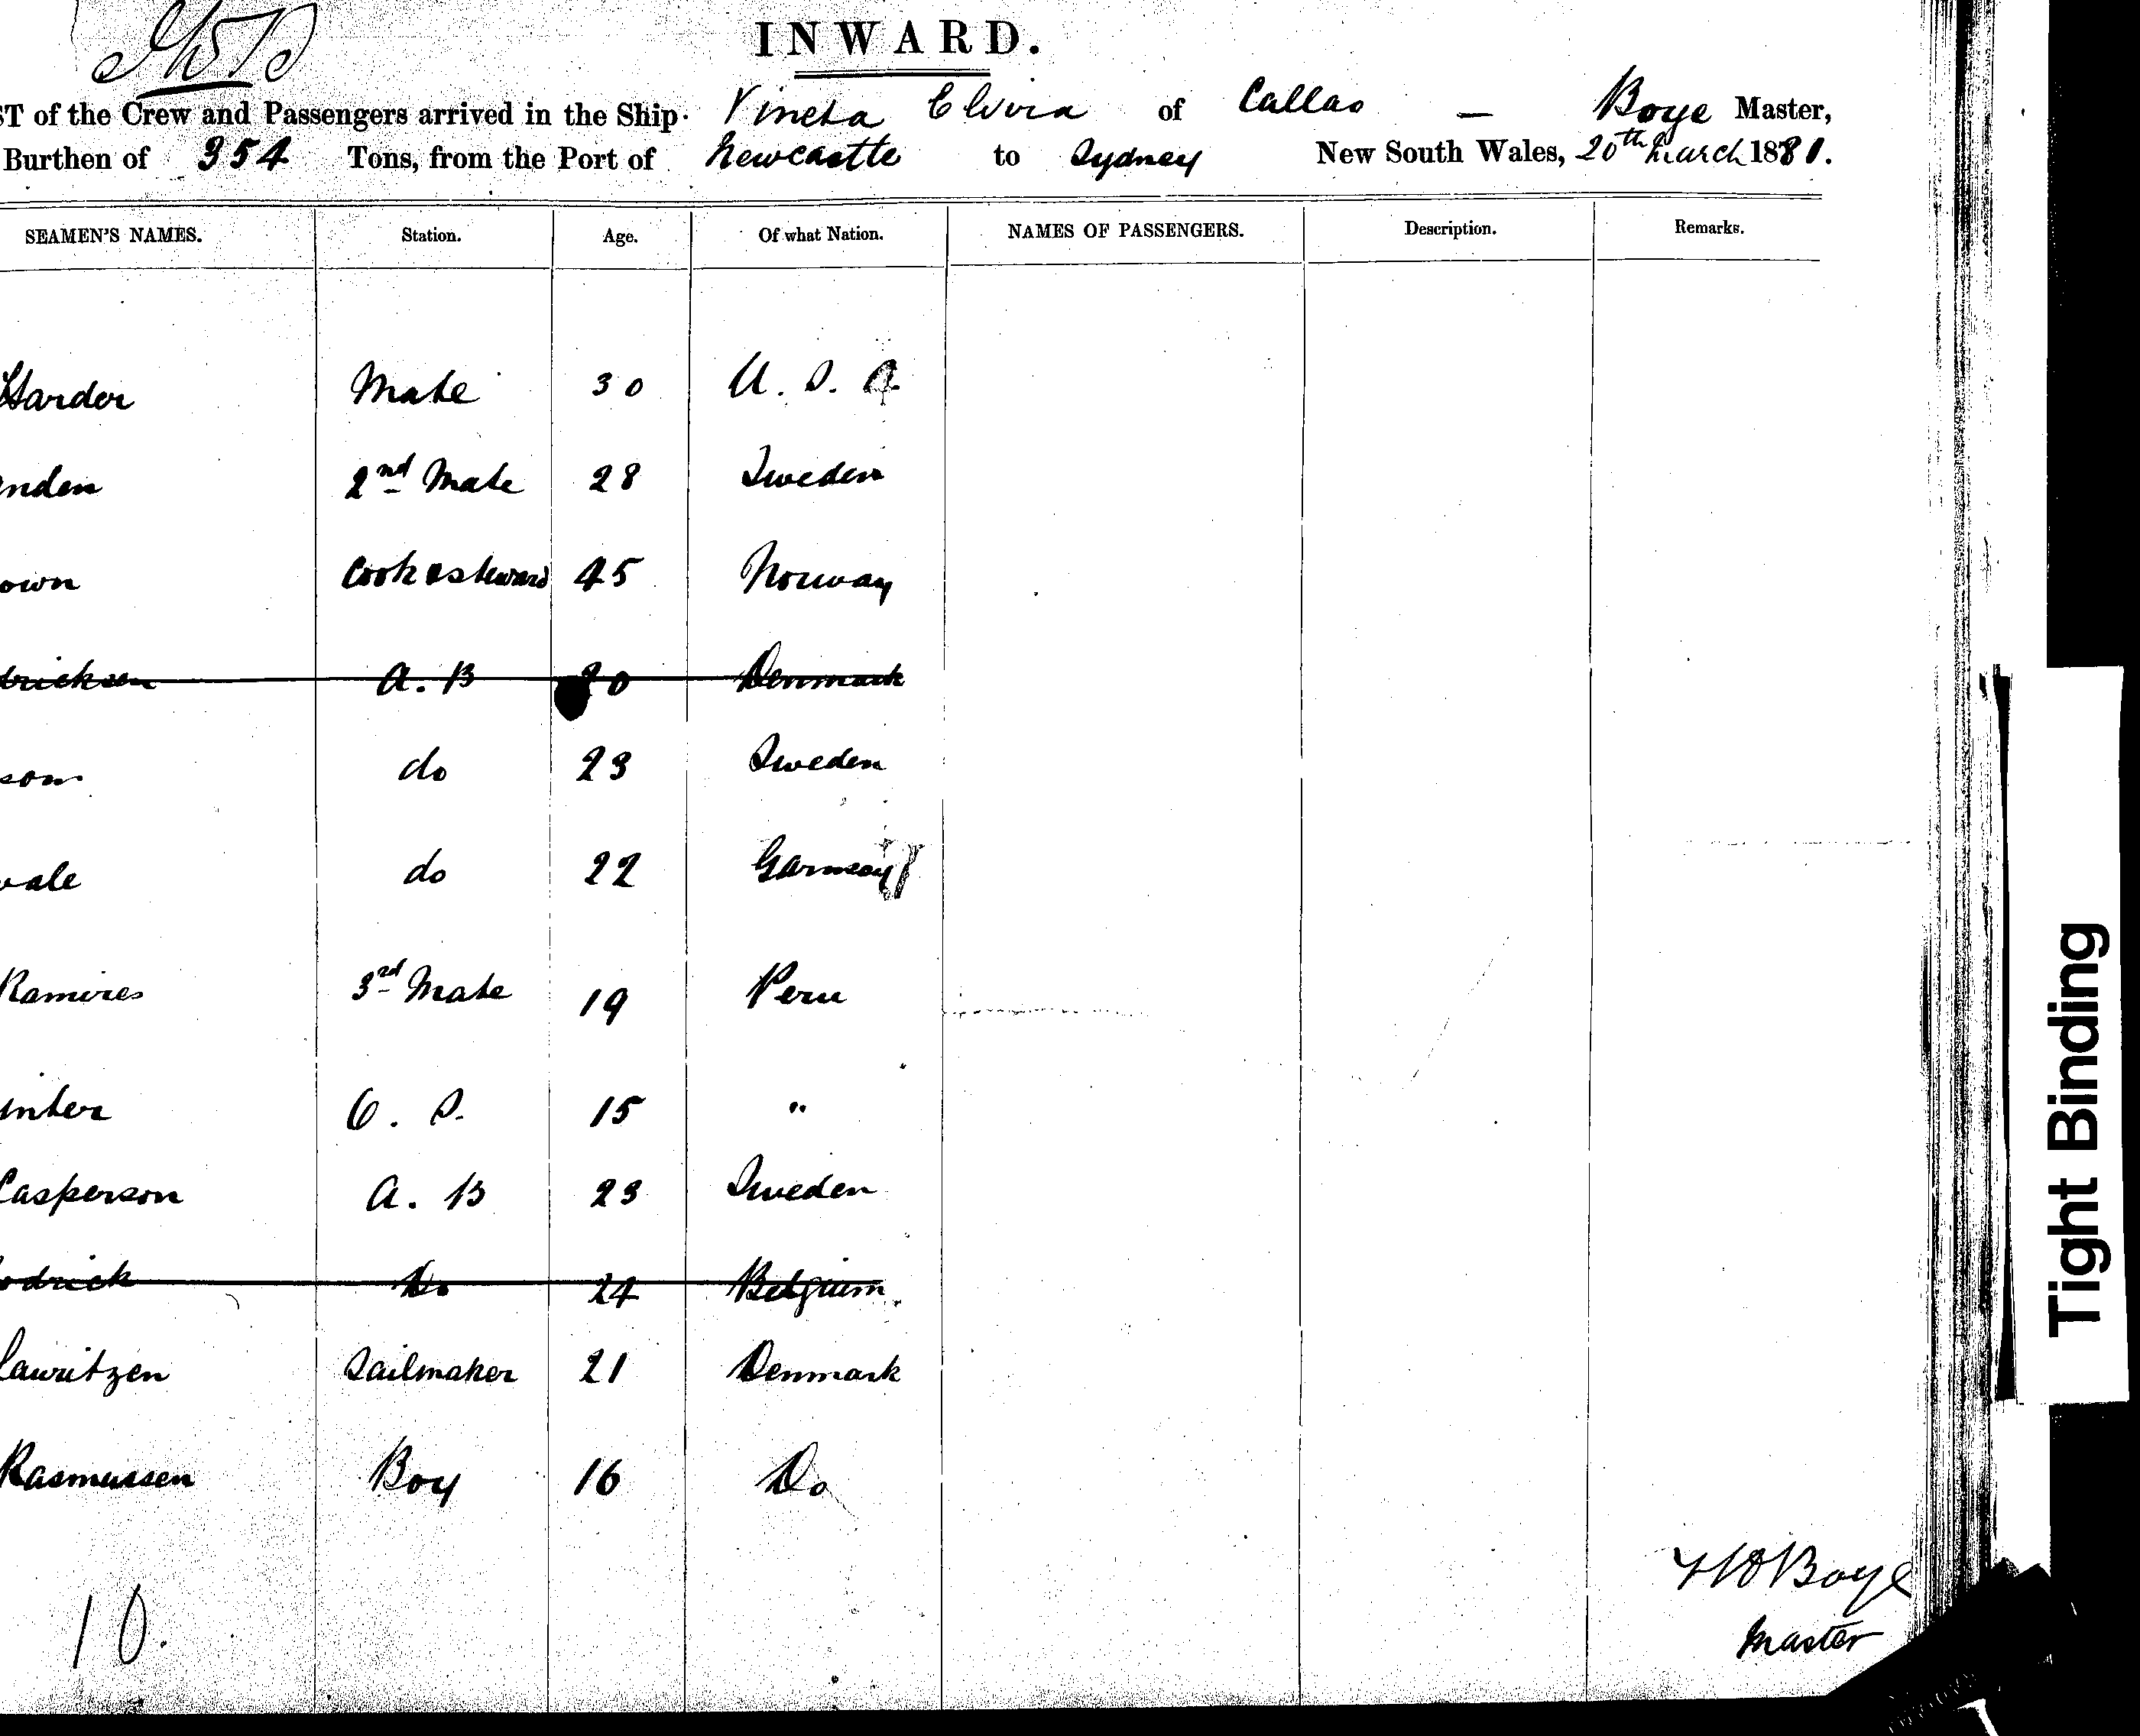 INWARD.
ST of the Crew and Passengers arrived in the Ship Vineta Elvira of Callao — Boye Master,
Burthen of 354 Tons, from the Port of Newcastle to Sydney New South Wales, 20th March 1881.
SEAMEN'S NAMES. Station. Age. Of what Nation. NAMES OF PASSENGERS. Description. Remarks.
Harder Mate 30 U. S. A
nden 2nd Mate 28 Sweden
own Cook & Steward 45 Norway
dricksen A. B 20 Denmark
son do 23 Sweden
vale do 22 Garnsey
Ramires 3rd Mate 19 Peru
inter O. S. 15 "
Casperson A. B 23 Sweden
odrick Do 24 Belgium
Lauritzen Sailmaker 21 Denmark
Rasmussen Boy 16 Do
Boye
Master
10.
Tight Binding